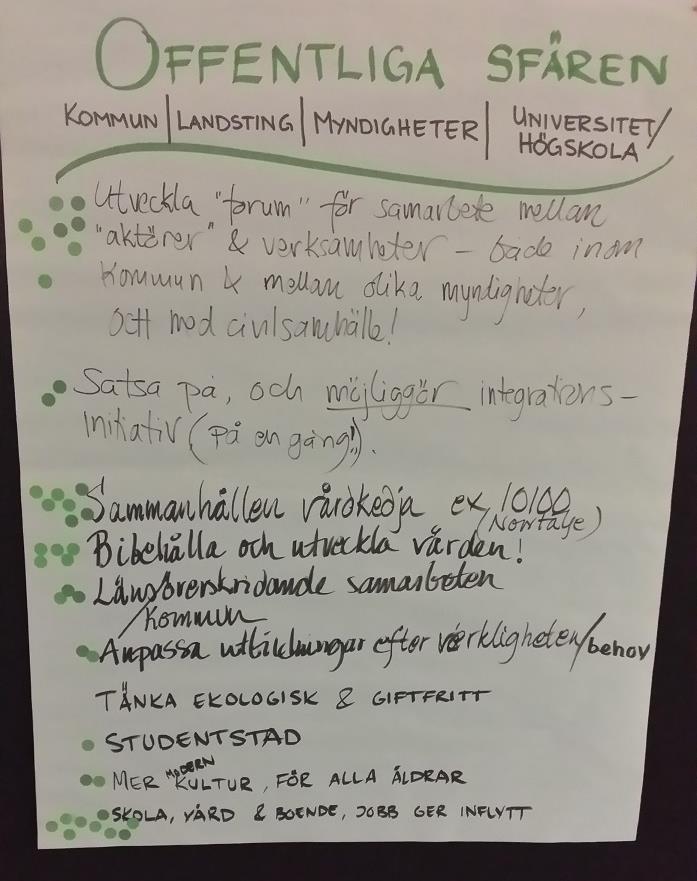 OFFENTLIGA SFÄREN
KOMMUN | LANDSTING | MYNDIGHETER | UNIVERSITET/
HÖGSKOLA
Utveckla "forum" för samarbete mellan
"aktörer" & verksamheter – både inom
kommun & mellan olika myndigheter,
och med civilsamhälle!
Satsa på, och möjliggör integrations-
initiativ (på en gång!).
Sammanhållen vårdkedja ex, 10100
(Norrtälje)
Bibehålla och utveckla vården!
Länsöverskridande samarbeten
/kommun
Anpassa utbildningar efter verkligheten/behov
TÄNKA EKOLOGISK & GIFTFRITT
STUDENTSTAD
MER MODERN KULTUR, FÖR ALLA ÅLDRAR
SKOLA, VÅRD & BOENDE, JOBB GER INFLYTT